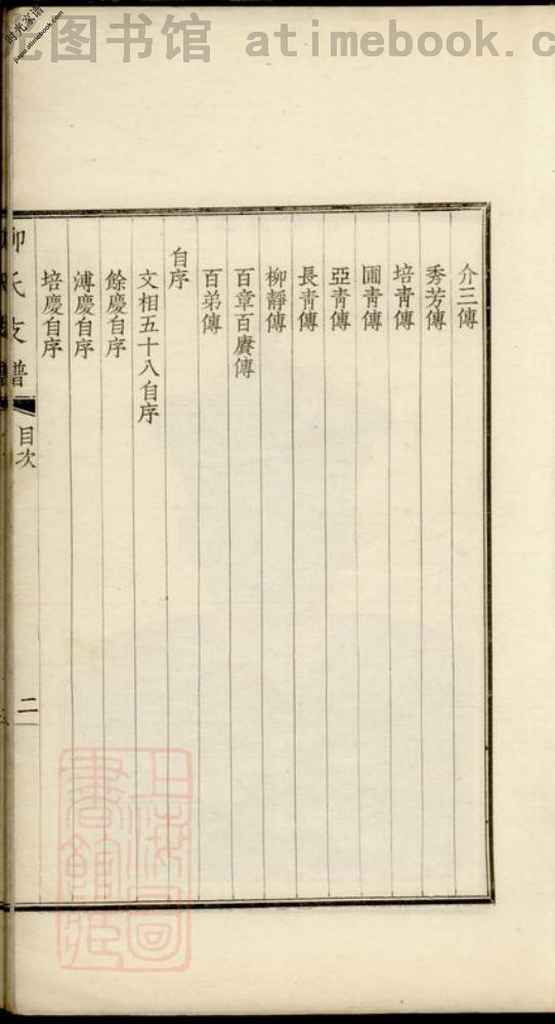 图书馆 atimebook.c
时光家谱
www.atimebook.com
介三傳
秀芳傳
培靑傳
圃靑傳
亞靑傳
長靑傳
柳靜傳
百章百賡傳
百弟傳
自序
文相五十八自序
餘慶自序
溥慶自序
培慶自序
柳氏支譜
目次
二
上海圖書館藏